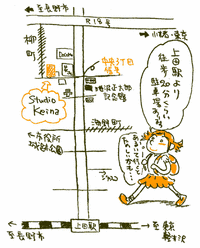 ←至長野市
R18号
→小諸・東京
柳町
中央3丁目
信号
池波正太郎
記念館
Studio
Keina
海野町
←市役所
城跡公園
上田駅より
徒歩20分くらい
駐車場あります
上田駅
←至長野市
軽井沢